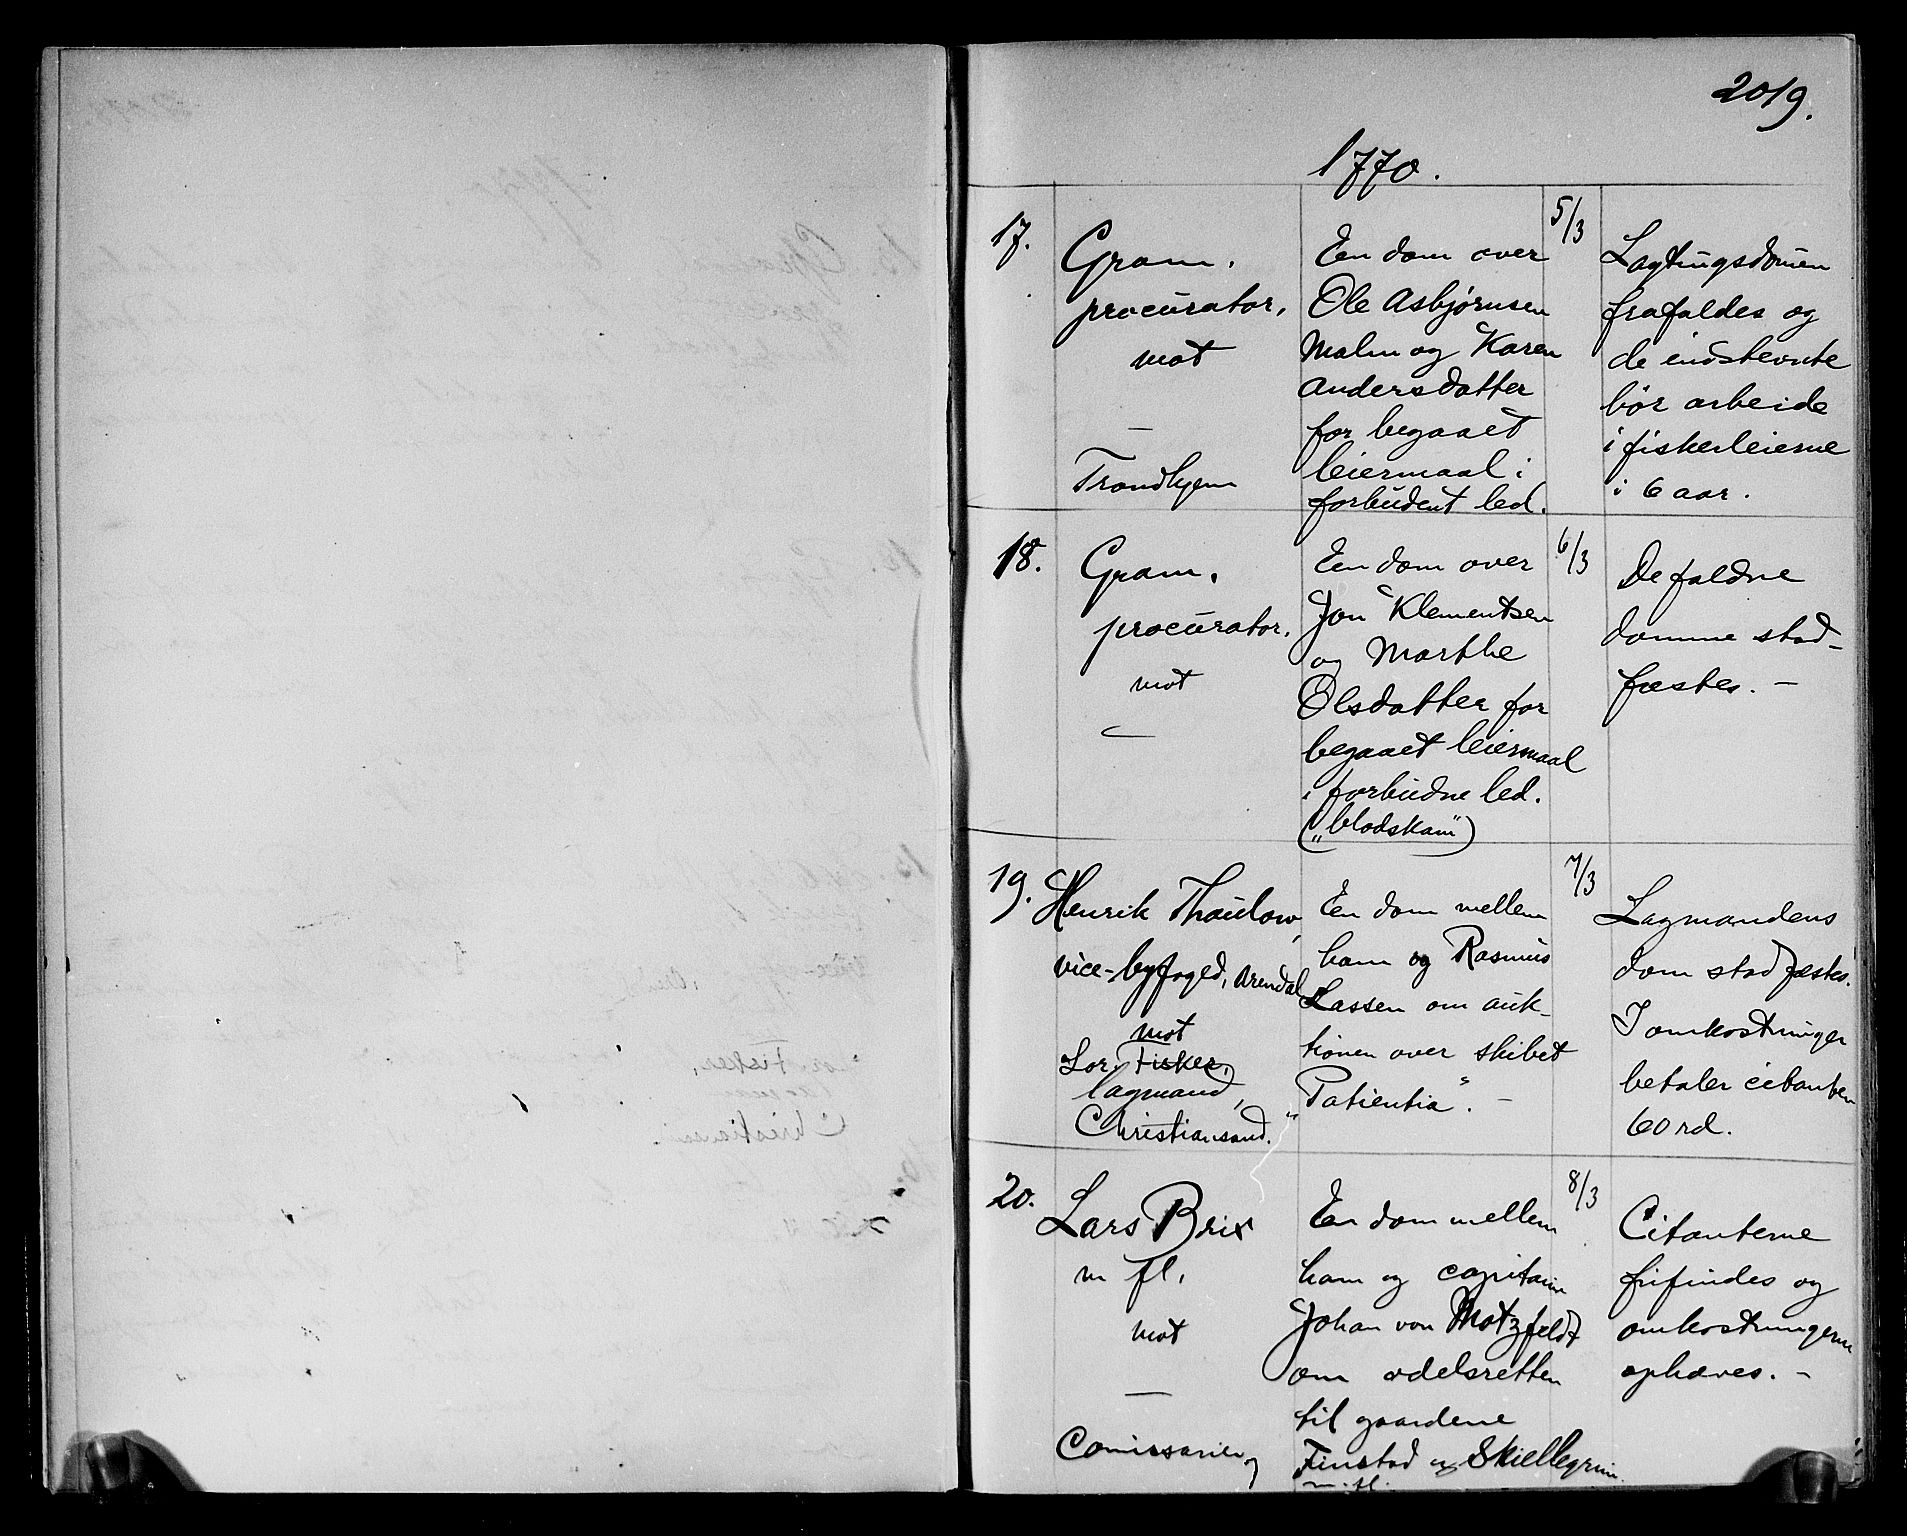 2019.
1770.
17.
Gram,
procurator,
mot
—
Trondhjem
En dom over
Ole Asbjørnsen
Malm og Karen
Andersdatter
for begaaet
leiermaal i
forbudent led.
5/3
Lagtingsdomen
frafaldes og
de indstevnte
bør arbeide
i fiskerleierne
i 6 aar.
18.
Gram,
procurator,
mot
—
En dom over
Jon Klementsen
og Marthe
Olsdatter for
begaaet leiermaal
i forbudne led.
("blodskam")
6/3
De faldne
domme stad-
fæstes. —
19.
Henrik Thaulow,
vice-byfoged, Arendal
mot
Lor. Fisker,
lagmand,
Christiansand.
En dom mellem
ham og Rasmus
Lassen om auk-
tionen over skibet
"Patientia". —
7/3
Lagmandens
dom stadfæstes.
I omkostninger
betaler citanten
60 rd.
20.
Lars Brix
m fl.
mot
—
Comissarier
En dom mellem
ham og capitain
Johan von Motzfeldt
om odelsretten
til gaardene
Finstad og Skiellegrim
m. fl.
8/3
Citanterne
frifindes og
omkostningerne
ophæves. —